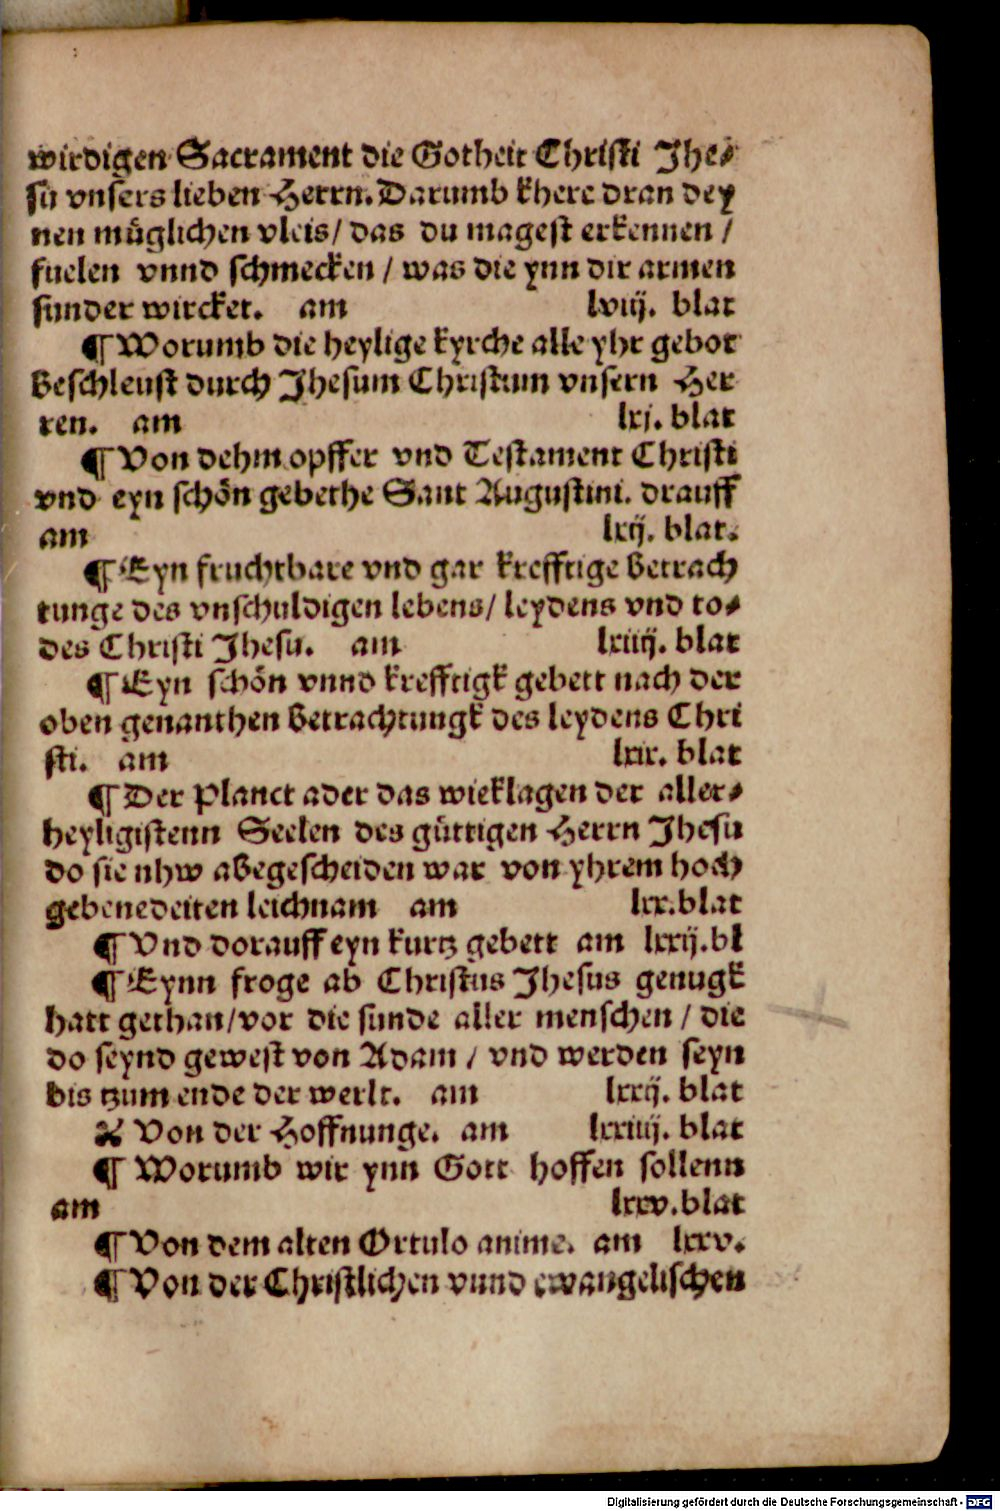 wirdigen Sacrament die Gotheit Christi Jhe-
su vnsers lieben Herrn. Darumb khere dran dey
nen müglichen vleis/ das du magest erkennen /
fuelen vnnd schmecken / was die ynn dir armen
sunder wircket. am lviij. blat
¶ Worumb die heylige kyrche alle yhr gebot
beschleust durch Jhesum Christum vnsern Her
ren. am lxj. blat
¶ Von dehm opffer vnd Testament Christi
vnd eyn schön gebethe Sant Augustini. drauff
am lxij. blat.
¶ Eyn fruchtbare vnd gar krefftige betrach
tunge des vnschuldigen lebens/ leydens vnd to-
des Christi Jhesu. am lxiiij. blat
¶ Eyn schön vnnd krefftigk gebett nach der
oben genanthen betrachtungk des leydens Chri
sti. am lxix. blat
¶ Der Planct ader das wieklagen der aller-
heyligistenn Seelen des güttigen Herrn Jhesu
do sie nhw abegescheiden war von yhrem hoch
gebenedeiten leichnam am lxx.blat
¶ Vnd dorauff eyn kurtz gebett am lxxij.bl
¶ Eynn froge ab Christus Jhesus genugk
hatt gethan/vor die sunde aller menschen / die
do seynd gewest von Adam / vnd werden seyn
bis tzum ende der werlt. am lxxij. blat
Von der Hoffnunge. am lxxiiij. blat
¶ Worumb wir ynn Gott hoffen sollenn
am lxxv.blat
¶ Von dem alten Ortulo anime. am lxxv.
¶ Von der Christlichen vnnd ewangelischen
Digitalisierung gefördert durch die Deutsche Forschungsgemeinschaft - DFG